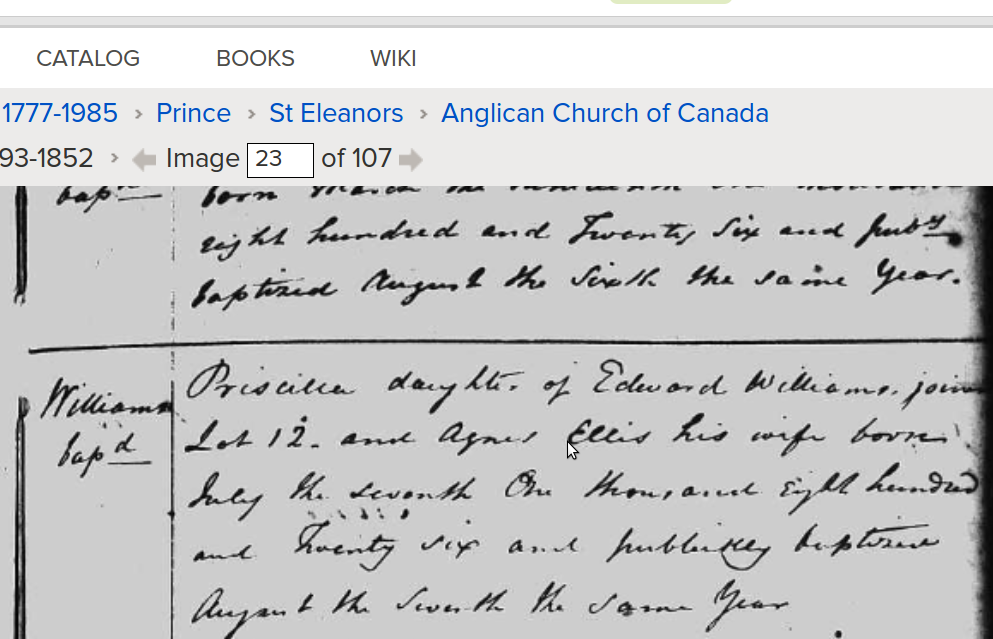 CATALOG BOOKS WIKI
1777-1985 › Prince › St Eleanors › Anglican Church of Canada
93-1852 › Image 23 of 107
bapd born March the
eight hundred and Twenty Six and puby
baptized August the Sixth the same Year.
Williams Priscilla daughter of Edward Williams, join
bapd Lot 12. and Agnes Ellis his wife born
July the seventh One thousand Eight hundred
and Twenty six and publickly baptized
August the Seventh the same Year